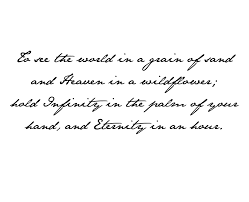 To see the world in a grain of sand
and Heaven in a wildflower;
hold Infinity in the palm of your
hand, and Eternity in an hour.